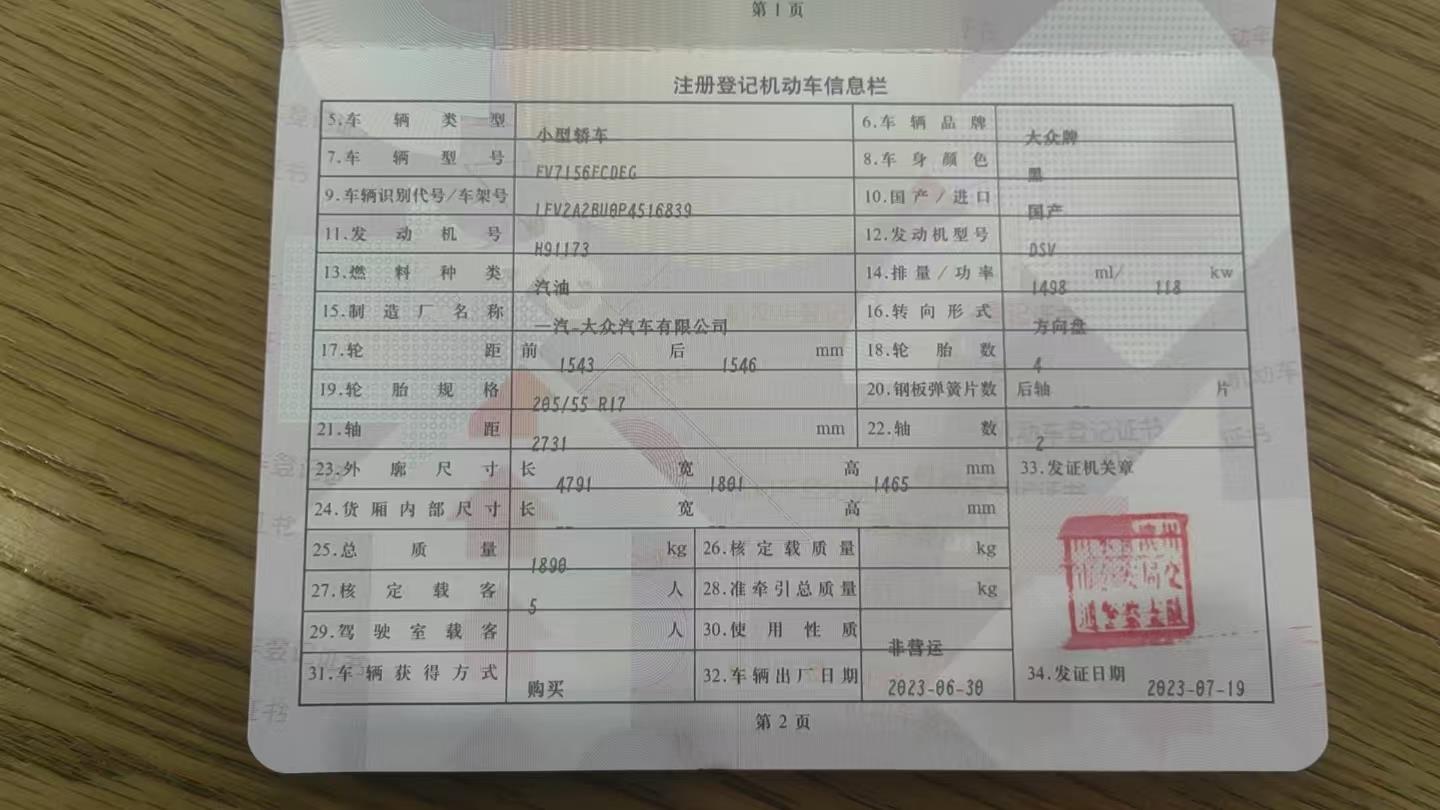 第1页
注册登记机动车信息栏
5.车辆类型 小型轿车 6.车辆品牌 大众牌
7.车辆型号 FV7156FCDEG 8.车身颜色 黑
9.车辆识别代号/车架号 LFV2A2BU0P4516839 10.国产/进口 国产
11.发动机号 H91173 12.发动机型号 DSV
13.燃料种类 汽油 14.排量/功率 1498 ml/ 118 kw
15.制造厂名称 一汽-大众汽车有限公司 16.转向形式 方向盘
17.轮距 前 1543 后 1546 mm 18.轮胎数 4
19.轮胎规格 205/55 R17 20.钢板弹簧片数 后轴 -- 片
21.轴距 2731 mm 22.轴数 2
23.外廓尺寸 长 4791 宽 1801 高 1465 mm 33.发证机关章
24.货厢内部尺寸 长 -- 宽 -- 高 -- mm
25.总质量 1890 kg 26.核定载质量 kg
27.核定载客 5 人 28.准牵引总质量 kg
29.驾驶室载客 人 30.使用性质 非营运
31.车辆获得方式 购买 32.车辆出厂日期 2023-06-30 34.发证日期 2023-07-19
第2页